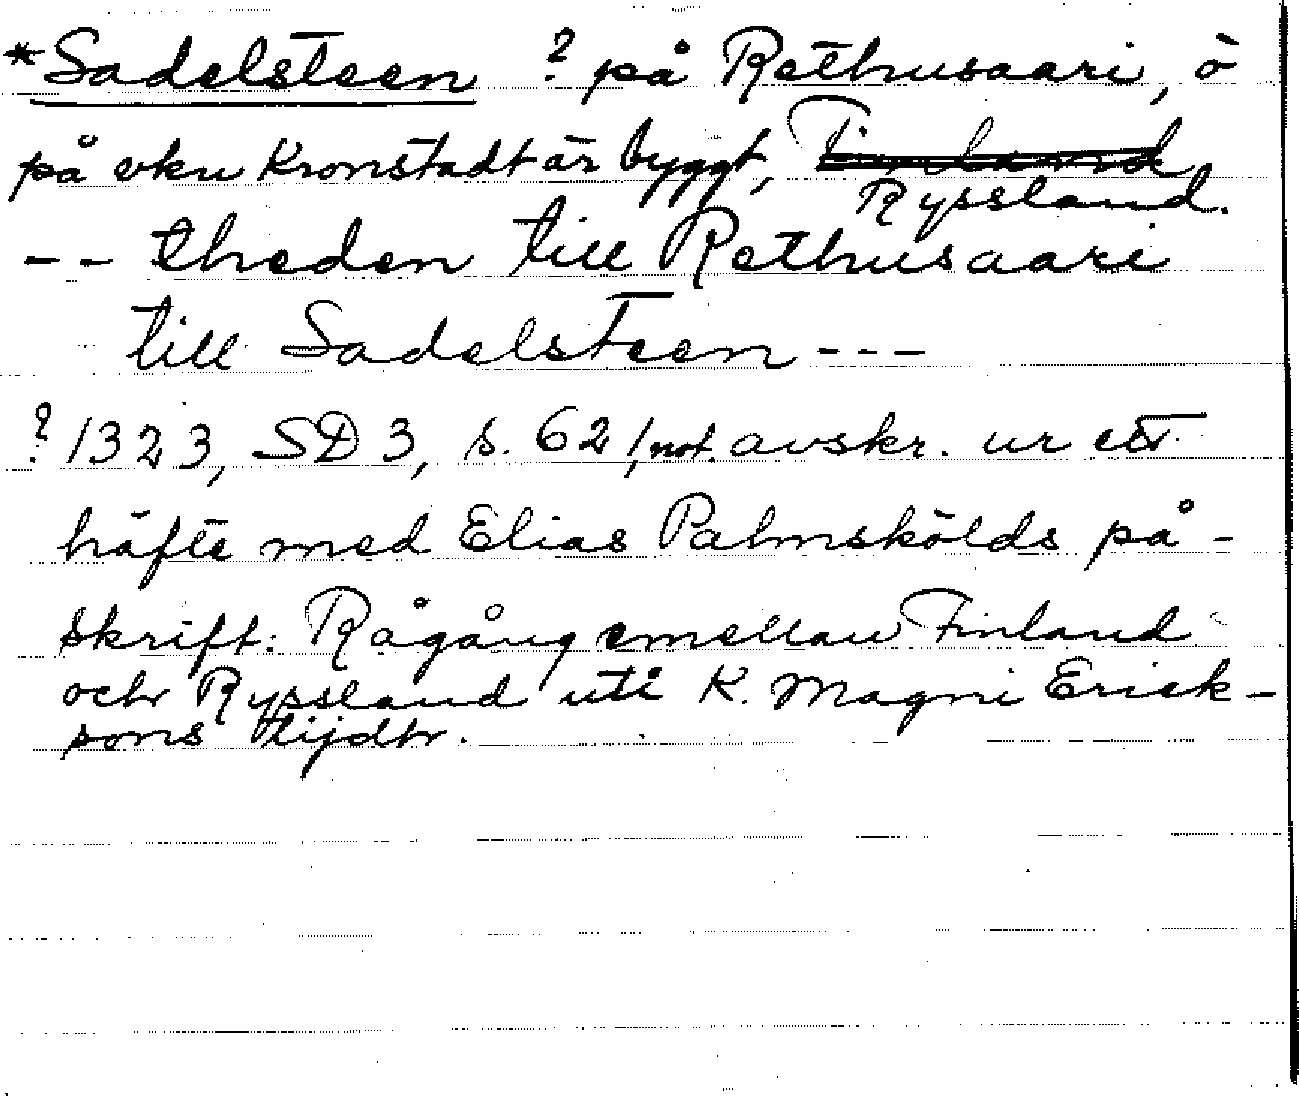 *Sadelsteen ? på Rethusaari, ö
på vken Kronstadt är byggt, Finland
Ryssland.
-- theden till Rethusaari
till Sadelsteen ---
? 1323, SD 3, s. 62, not. avskr. ur ett
häfte med Elias Palmskölds på-
skrift: Rågång emellan Finland
och Ryssland uti K. Magni Erick-
sons tijdh.